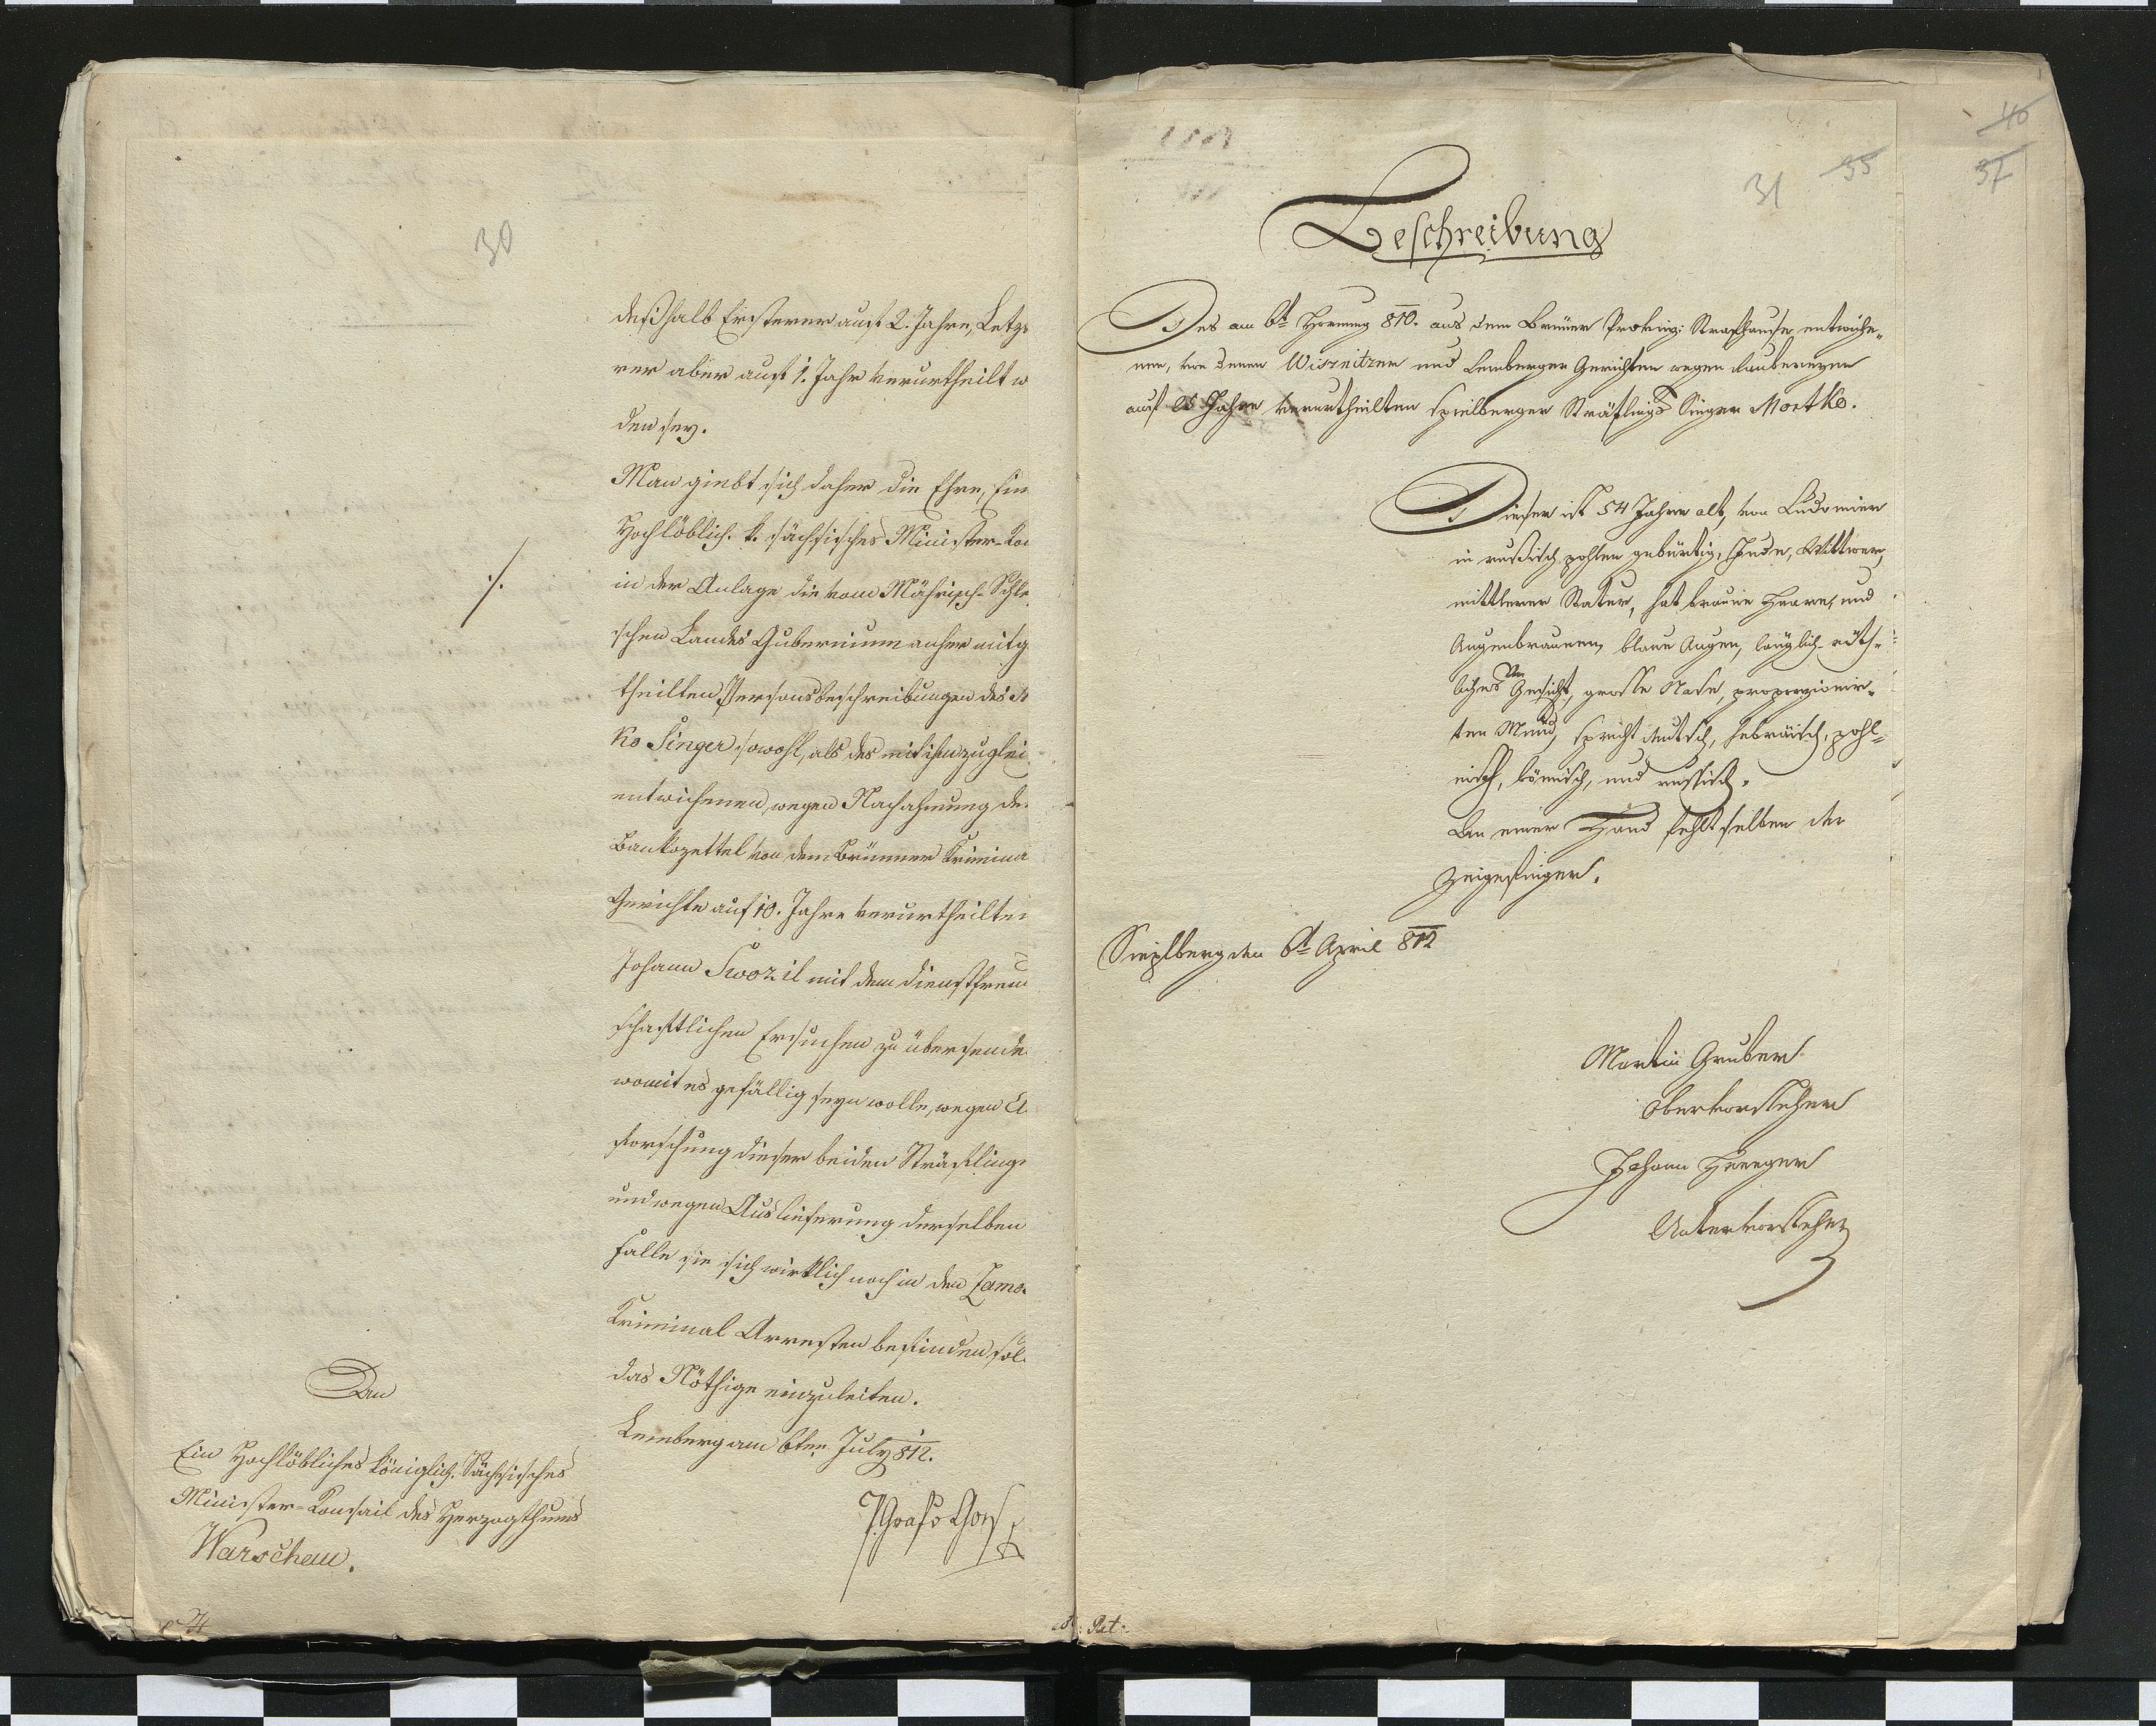 30
deßhalb Ersterer auf 2. Jahre, Letzt
rer aber auf 1. Jahr verurtheilt w
den sey.
Man giebt sich daher die Ehre, Ein
Hochlöblich. k. sächsisches Minister-Kon
./.
in der Anlage die vom Mährisch-Schle
schen Landes Gubernium anher mitge
theilten Personsbeschreibungen des
ko Singer sowohl, als des mit ihm zuglei
entwichenen, wegen Nachahmung de
Bankozettel von dem Brünner Krimina
Gerichte auf 10. Jahre verurtheilten
Johann Swozil mit dem dienstfreun
schaftlichen Ersuchen zu übersende
womit es gefällig seyn wolle, wegen
forschung dieser beiden Sträflinge
und wegen Auslieferung derselben
Falle sie sich wirklich noch in den Zamo
Kriminal Arresten befinden sol
das Nöthige einzuleiten.
Lemberg am 6ten July 812.
An
Ein Hochlöbliches königlich. Sächsisches
Minister-Konseil des Herzogthums
Warschau.
40
37
35
31
Beschreibung
Des am 6t Hornung 810. aus dem Brünner Provinz: Strafhause entwiche„
nen, von denen Wisznitzer und Lemberger Gerichten wegen Raubereyen
auf 25 Jahre verurtheilten Spielberger Sträflings Singer Mortko.
Dieser ist 54 Jahre alt, von Ludomier
in russisch pohlen gebürtig, Jude, Wittwer,
mittlerer Statur, hat braune Haare, und
Augenbraunen, blaue Augen, länglich-röth„
liches Gesicht, grosse Nase, proporzionir„
ten Mund, spricht deutsch, hebräisch, pohl„
nisch, bömisch, und russisch.
An einer Hand fehlt selben der
Zeigefinger.
Spielberg den 6t April 812
Martin Gruber
Obervorsteher
Johann Heeger
Untervorsteher